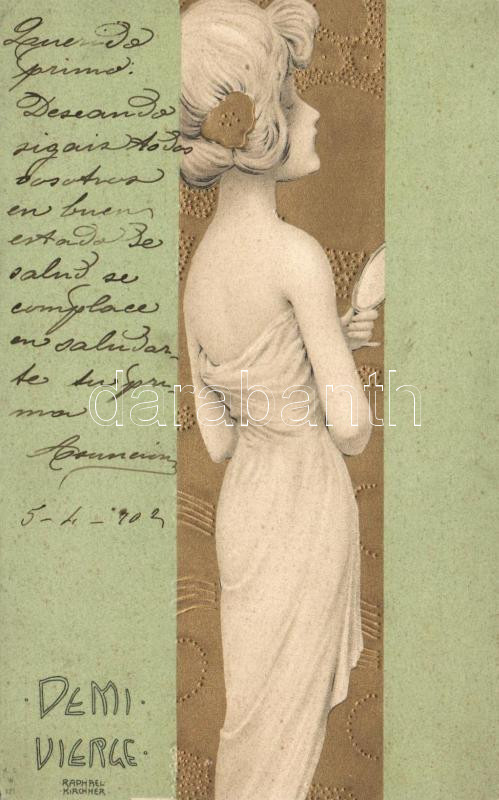 Querido
primo.
Deseando
sigais todos
vosotros
en buen
estado de
salud se
complace
en saludar-
te tu pri-
ma
5-4-902
darabanth
·DEMI·
VIERGE·
RAPHAEL
·KIRCHNER·